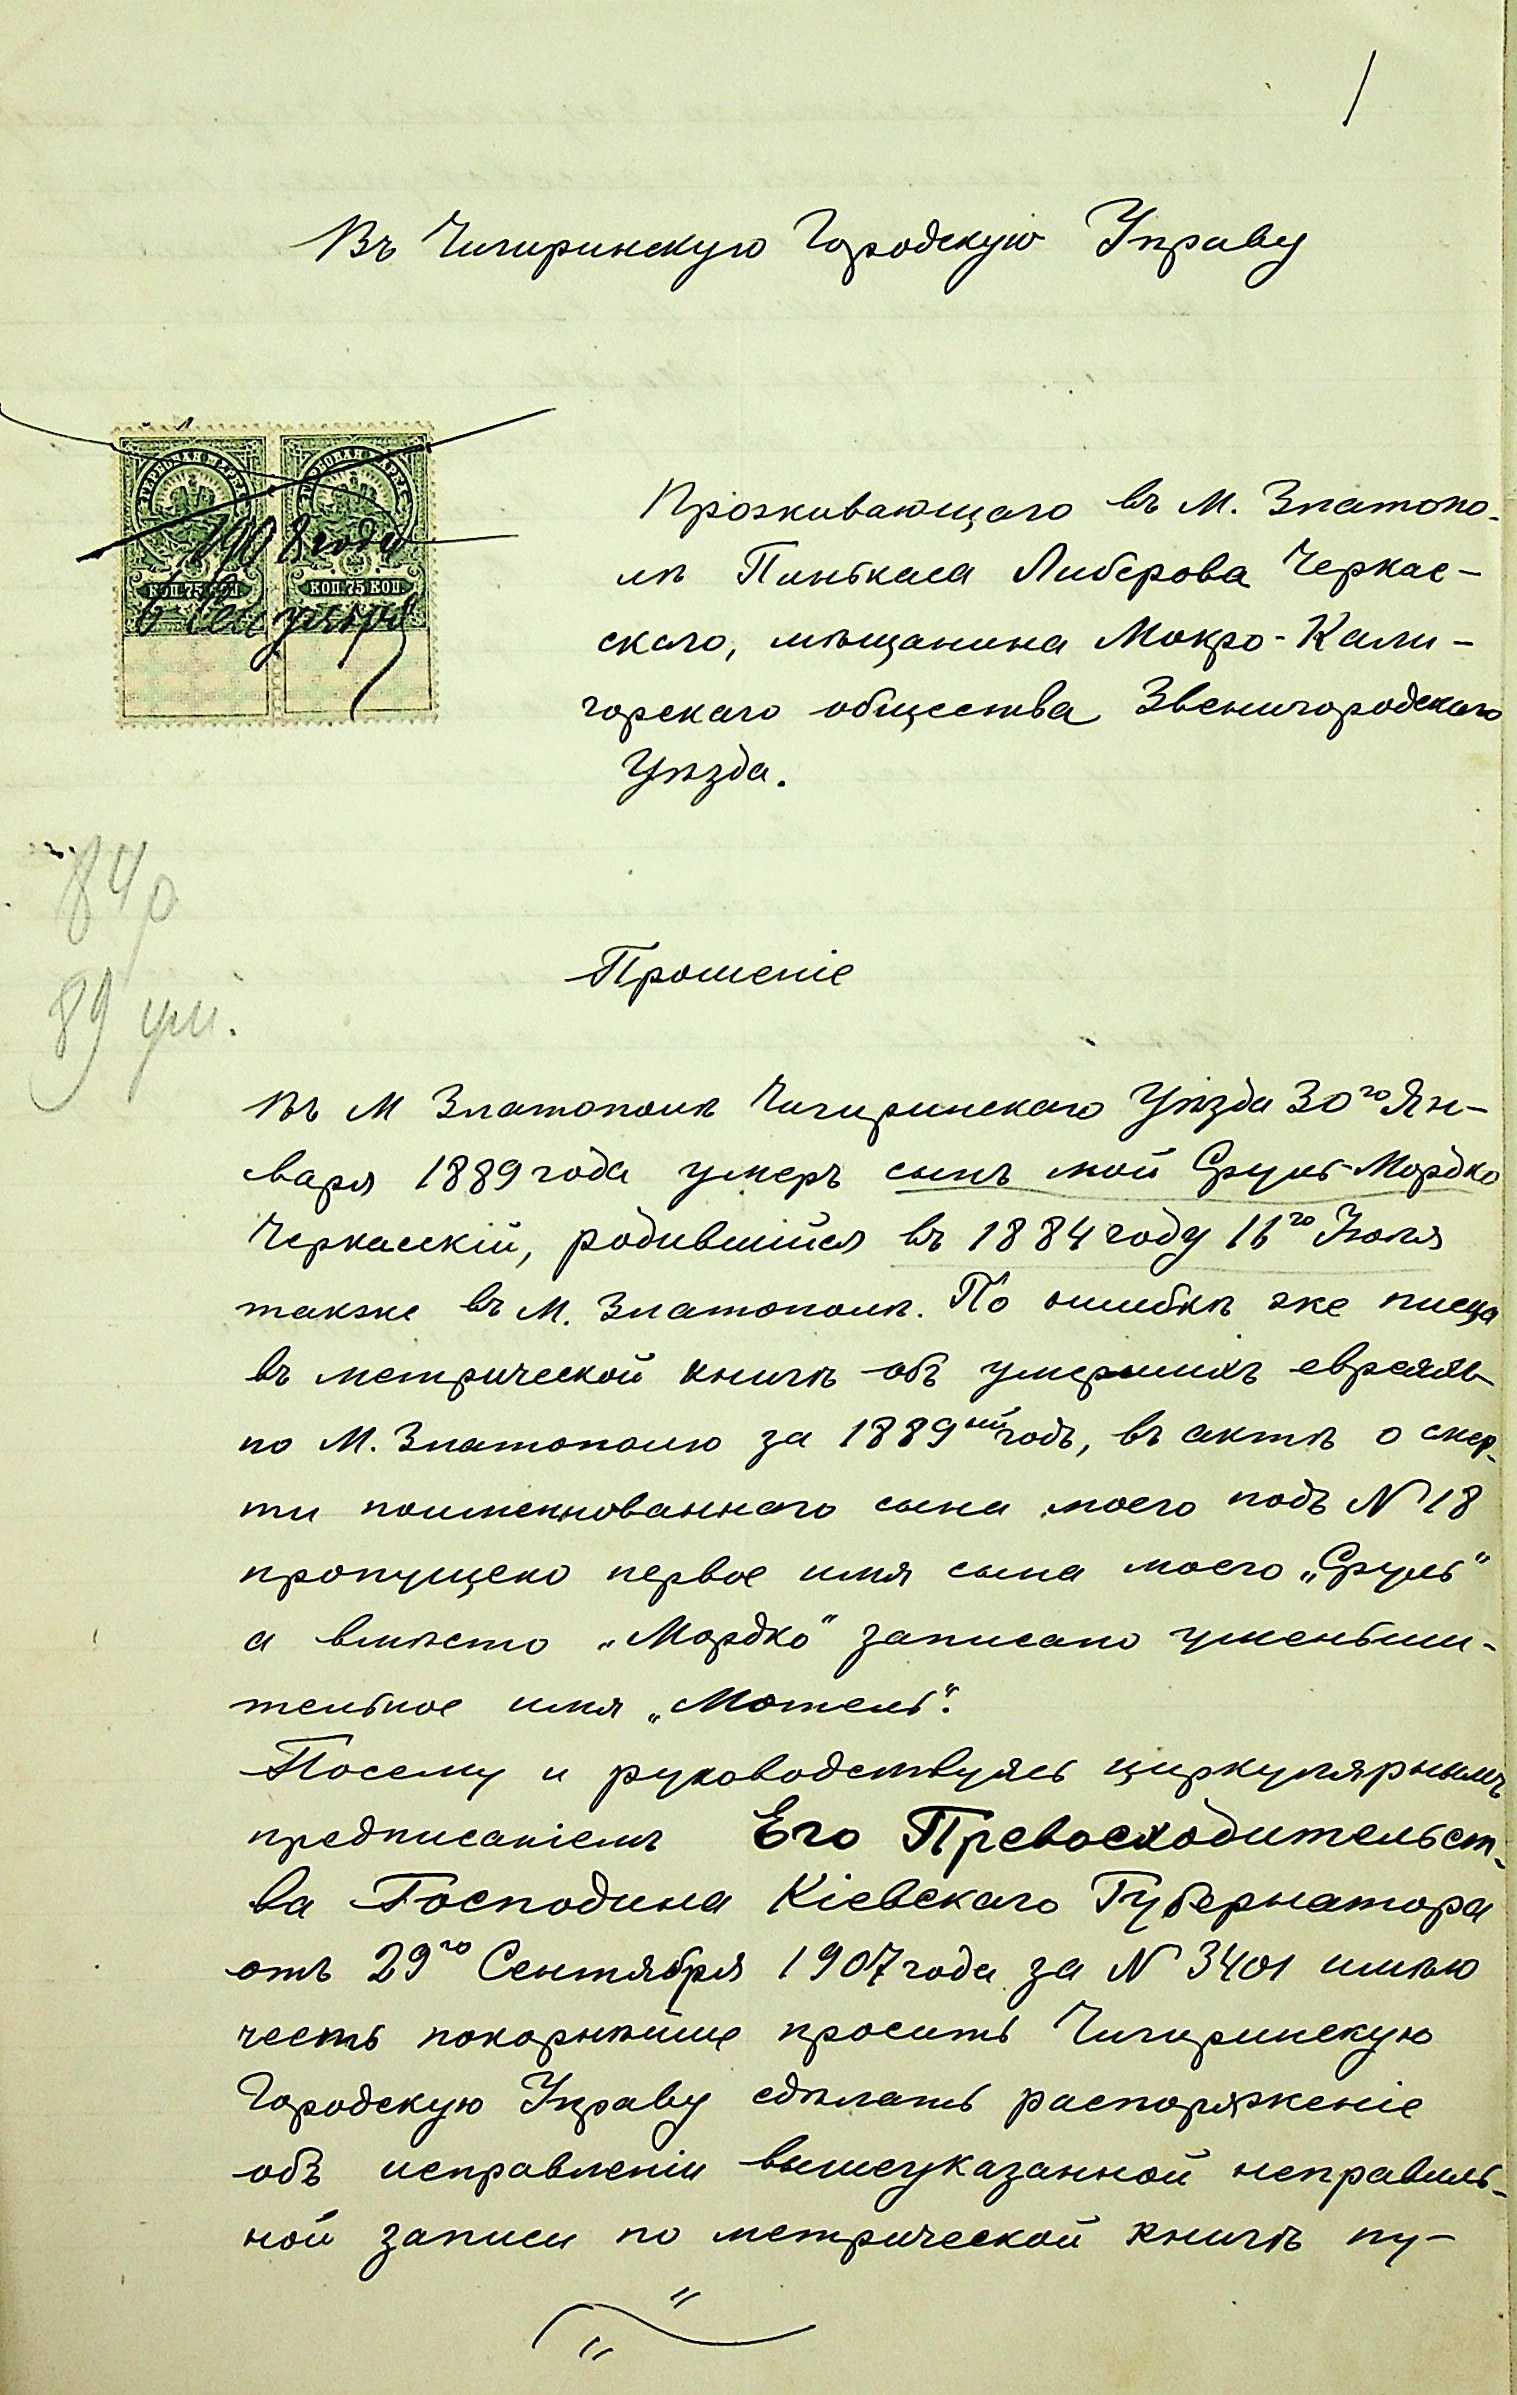 1
Въ Чигиринскую Городскую Управу
ГЕРБОВАЯ МАРКА ГЕРБОВАЯ МАРКА
1908 года
КОП. 75 КОП. КОП. 75 КОП.
Проживающаго въ М. Златопо-
лѣ Пинькаса Либерова Черкас-
скаго, мѣщанина Мокро-Кали-
горскаго общества Звенигородскаго
Уѣзда.
84 р
89 ум.
Прошеніе
Въ М Златополѣ Чигиринскаго Уѣзда 30го Ян-
варя 1889 года умеръ сынъ мой Сруль-Мордко
Черкасскій, родившійся въ 1884 году 16го Іюля
также въ М. Златополѣ. По ошибкѣ же писца
въ метрической книгѣ объ умершихъ евреяхъ
по М. Златополю за 1889ный годъ, въ актѣ о смер-
ти поименнованнаго сына моего подъ N 18
пропущено первое имя сына моего „Сруль"
а вмѣсто „Мордко" записано уменьши-
тельное имя „Мотель".
Посему и руководствуясь циркулярнымъ
предписаніемъ Его Превосходительст-
ва Господина Кіевскаго Губернатора
отъ 29го Сентября 1907 года за N 3401 имѣю
честь покорнѣйше просить Чигиринскую
Городскую Управу сдѣлать распоряженіе
объ исправленіи вышеуказанной неправиль-
ной записи по метрической книгѣ пу-